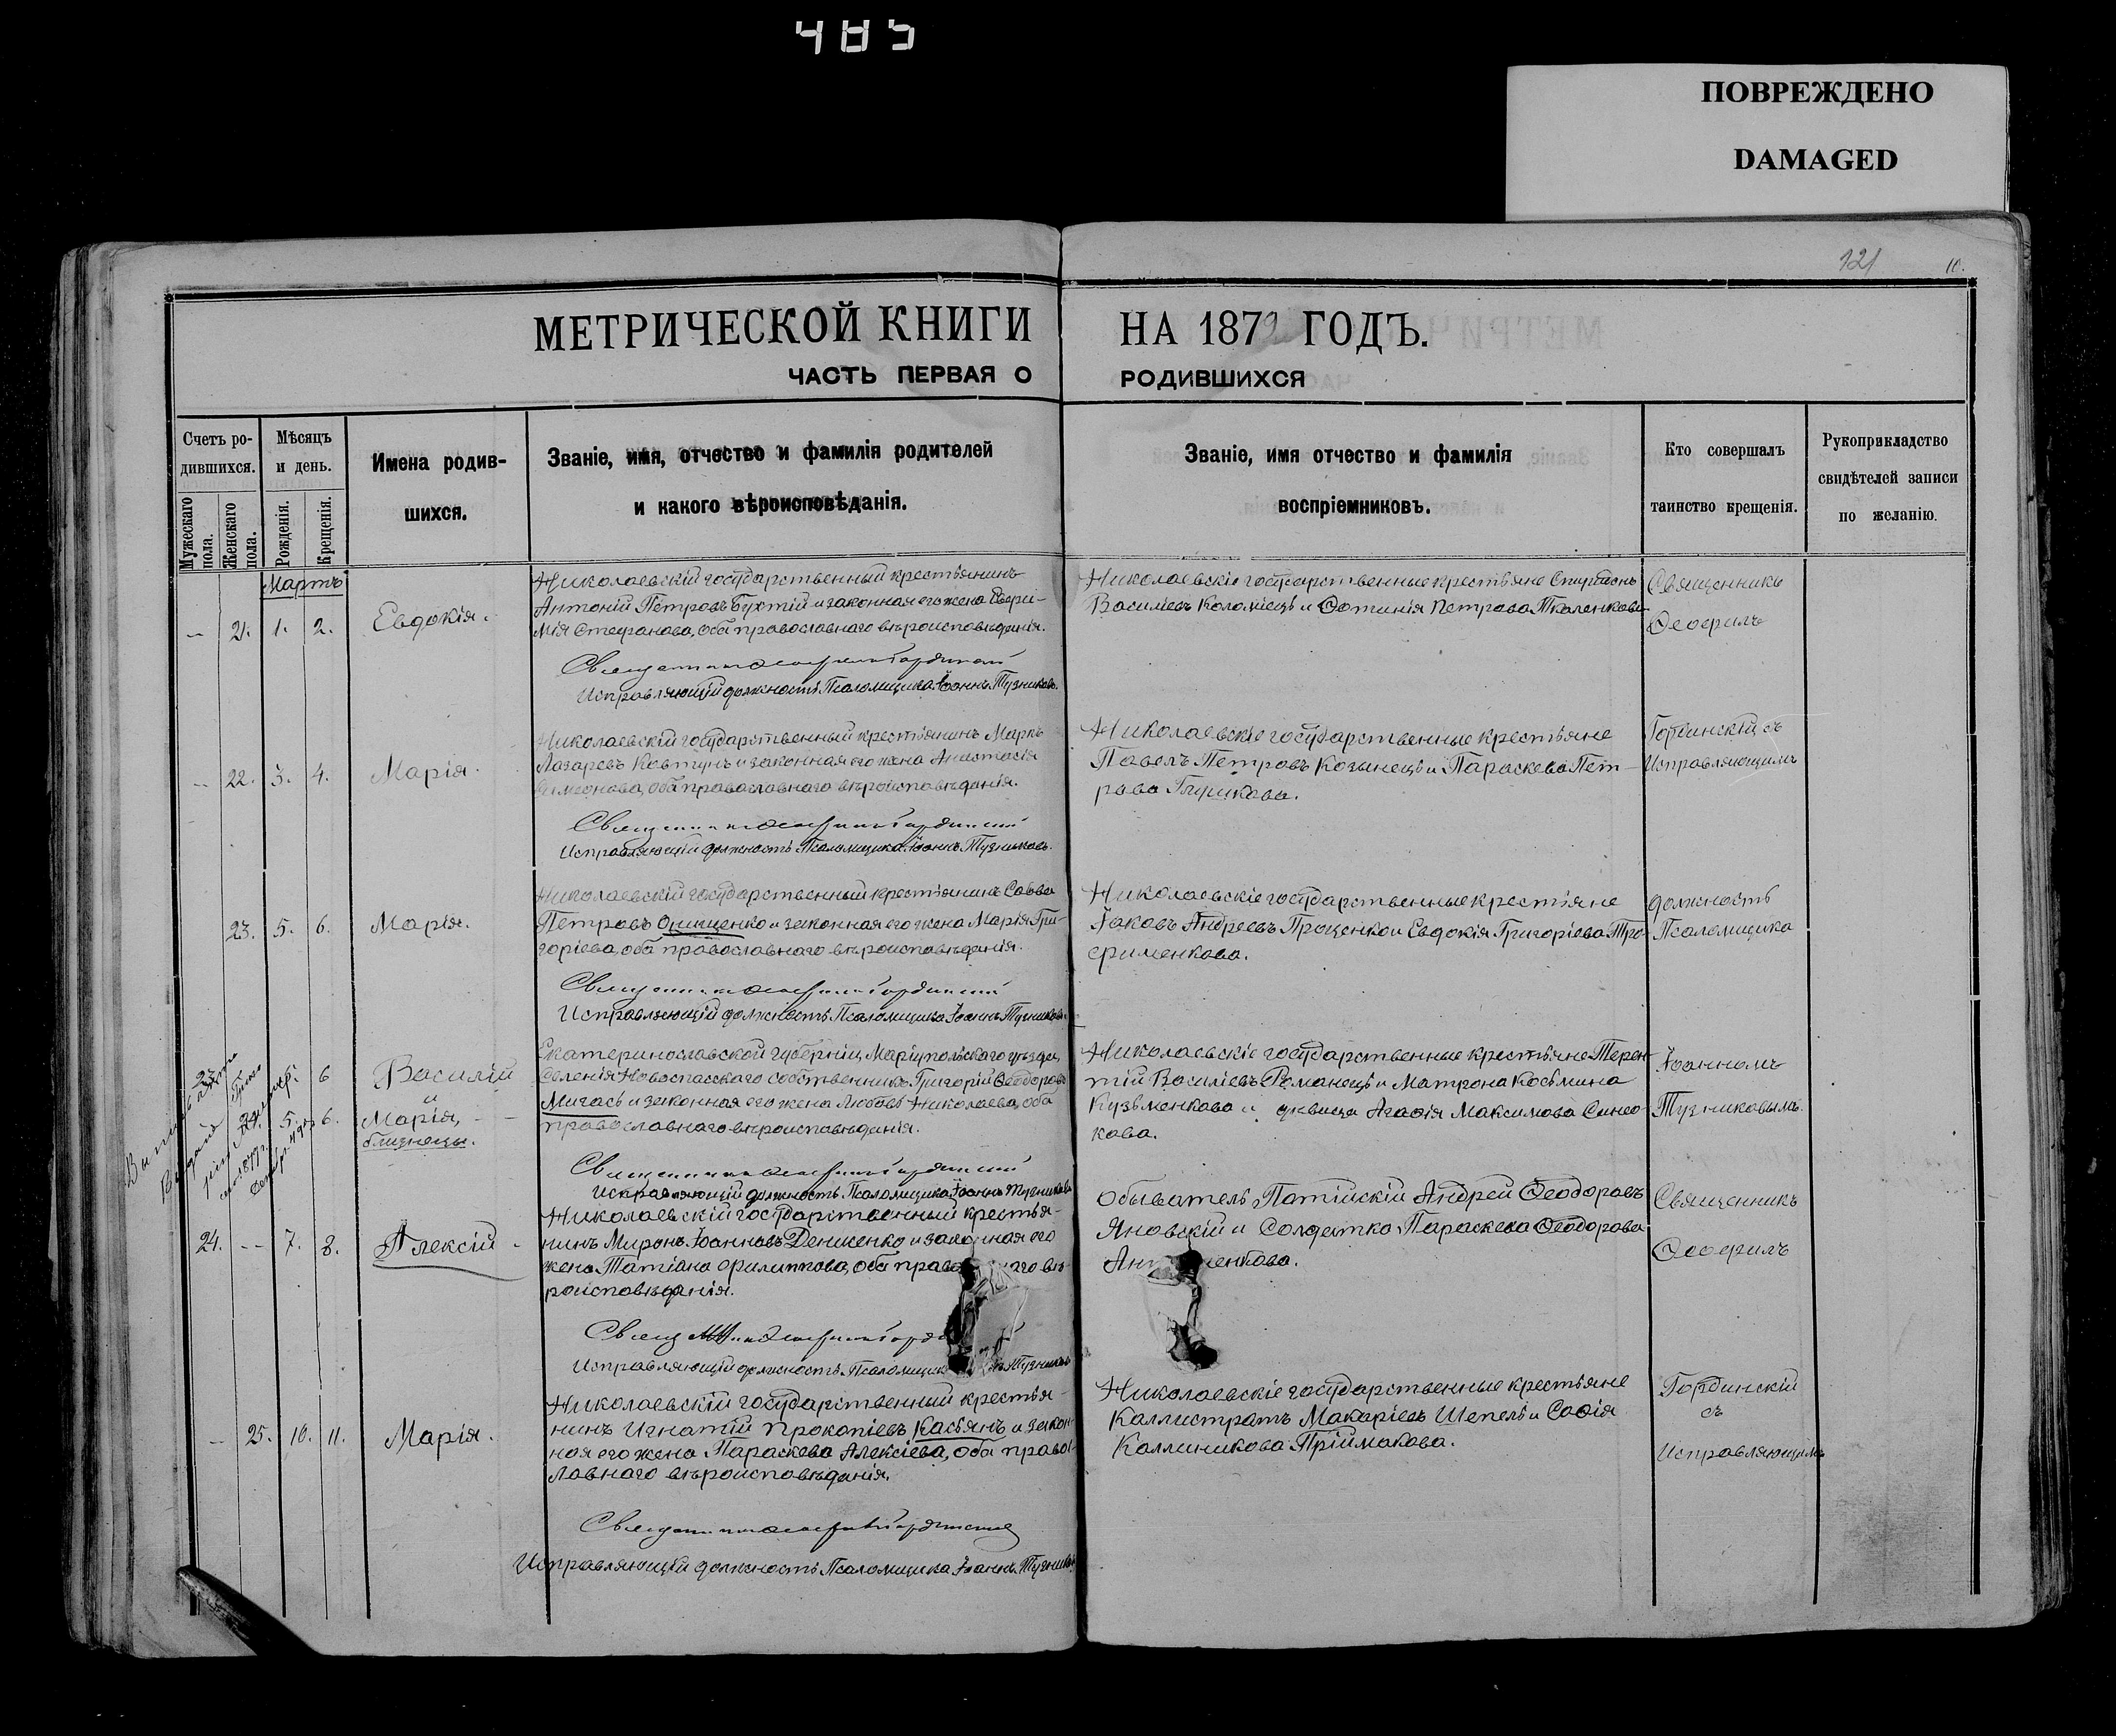 485
ПОВРЕЖДЕНО
DAMAGED
121
МЕТРИЧЕСКОЙ КНИГИ НА 1872 ГОДЪ.
ЧАСТЬ ПЕРВАЯ О РОДИВШИХСЯ
Счетъ ро-
дившихся.
Мужескаго пола.
Женскаго пола.
Мѣсяцъ
и день.
Рожденія.
Крещенія.
Имена родив-
шихся.
Званіе, имя, отчество и фамилія родителей
и какого вѣроисповѣданія.
Званіе, имя отчество и фамилія
воспріемниковъ.
Кто совершалъ
таинство крещенія.
Рукоприкладство
свидѣтелей записи
по желанію.
Мартъ
21. 1. 2.
Евдокія.
Николаевскій государственный крестьянинъ
Антоній Петровъ Бухтій и законная его жена Евфи-
мія Стефанова, оба православнаго вѣроисповѣданія.
Священникъ Ѳеофилъ Гординскій
Исправляющій должность Псаломщика Іоаннъ Тузниковъ.
Николаевскіе государственные крестьяне Спиридонъ
Василіевъ Коломіецъ и Фотинія Петрова Ткаленкова
Священникъ
Ѳеофилъ
22. 3. 4.
Марія.
Николаевскій государственный крестьянинъ Маркъ
Лазаревъ Ковтунъ и законная его жена Анастасія
Симеонова, оба православнаго вѣроисповѣданія.
Священникъ Ѳеофилъ Гординскій
Исправляющій должность Псаломщика Іоаннъ Тузниковъ.
Николаевскіе государственные крестьяне
Павелъ Петровъ Козынецъ и Параскева Пет-
рова
Гординскій съ
Исправляющимъ
23. 5. 6.
Марія.
Николаевскій государственный крестьянинъ Савва
Петровъ Онищенко и законная его жена Марія Гри-
горіева, оба православнаго вѣроисповѣданія.
Священникъ Ѳеофилъ Гординскій
Исправляющій должность Псаломщика Іоаннъ Тузниковъ.
Николаевскіе государственные крестьяне
Іаковъ Андреевъ Проценко и Евдокія Григоріева Тро-
фименкова.
должность
Псаломщика
23. 6
24. 5. 6.
Василій
и
Марія,
близнецы.
Екатеринославской губерніи, Маріупольскаго уѣзда,
селенія Новоспасскаго собственникъ Григорій Ѳеодоровъ
Мигась и законная его жена Любовь Николаева, оба
православнаго вѣроисповѣданія.
Священникъ Ѳеофилъ Гординскій
Исправляющій должность Псаломщика Іоаннъ Тузниковъ
Николаевскіе государственные крестьяне Терен-
тій Василіевъ Романецъ и Матрона Косьмина
Кузьменкова и дѣвица Агафія Максимова Синео-
кова.
Іоанномъ
Тузниковымъ.
24. 7. 8.
Алексій
Николаевскій государственный крестья-
нинъ Миронъ Іоанновъ Денисенко и законная его
жена Татіана Филиппова, оба прав аго вѣ-
роисповѣданія.
Исправляющій должность Псаломщик Тузниковъ
Обыватель Патійскій Андрей Ѳеодоровъ
Яновскій и Солдатка Параскева Ѳеодорова
Ан енкова.
Священникъ
Ѳеофилъ
25. 10. 11.
Марія.
Николаевскій государственный крестья-
нинъ Игнатій Прокопіевъ Касьянъ и закон-
ная его жена Параскева Алексіева, оба правос-
лавнаго вѣроисповѣданія.
Священникъ Ѳеофилъ Гординскій
Исправляющій должность Псаломщика Іоаннъ Тузниковъ
Николаевскіе государственные крестьяне
Каллистратъ Макаріевъ Шепель и Софія
Каллиникова Пріймакова.
Гординскій
съ
Исправляющимъ